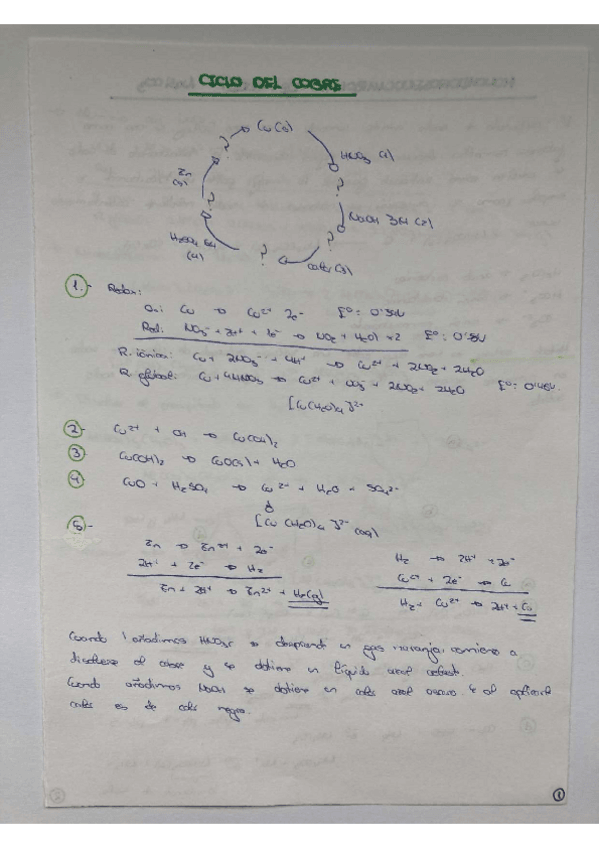 CICLO DEL COBRE
Cu(s)
Zn
(s)
HNO3 (1)
?
?
?
NaOH 3M (2)
H2SO4 6M
(4)
?
?
calor (3)
1.- Redox:
Ox: Cu → Cu2+ 2e- Eº: 0'34V
Red: NO3- + 2H+ + 1e- → NO2 + H2O) x2 Eº: 0'8V
R. iónica: Cu + 2NO3- + 4H+ → Cu2+ + 2NO2 + 2H2O
R. global: Cu + 4HNO3 → Cu2+ + NO3- + 2NO2 + 2H2O Eº: 0'46V
[Cu(H2O)4]2+
2- Cu2+ + OH → Cu(OH)2
3 Cu(OH)2 → CuO(s) + H2O
4 CuO + H2SO4 → Cu2+ + H2O + SO42-
[Cu (H2O)4]2+ (aq)
5.-
Zn → Zn2+ + 2e-
2H+ + 2e- → H2
Zn + 2H+ → Zn2+ + H2(g)
H2 → 2H+ + 2e-
Cu2+ + 2e- → Cu
H2 + Cu2+ → 2H+ + Cu
Cuando añadimos HNO3 se desprende un gas naranja, comienza a
disolverse el cobre y se obtiene un líquido azul celeste.
Cuando añadimos NaOH se obtiene un color azul oscuro y al aplicarle
calor es de color negro.
2
1